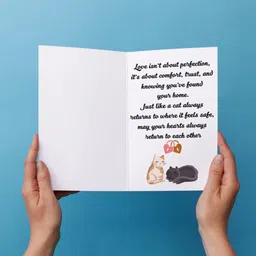 Love isn't about perfection,
it's about comfort, trust, and
knowing you've found
your home.
Just like a cat always
returns to where it feels safe,
may your hearts always
return to each other